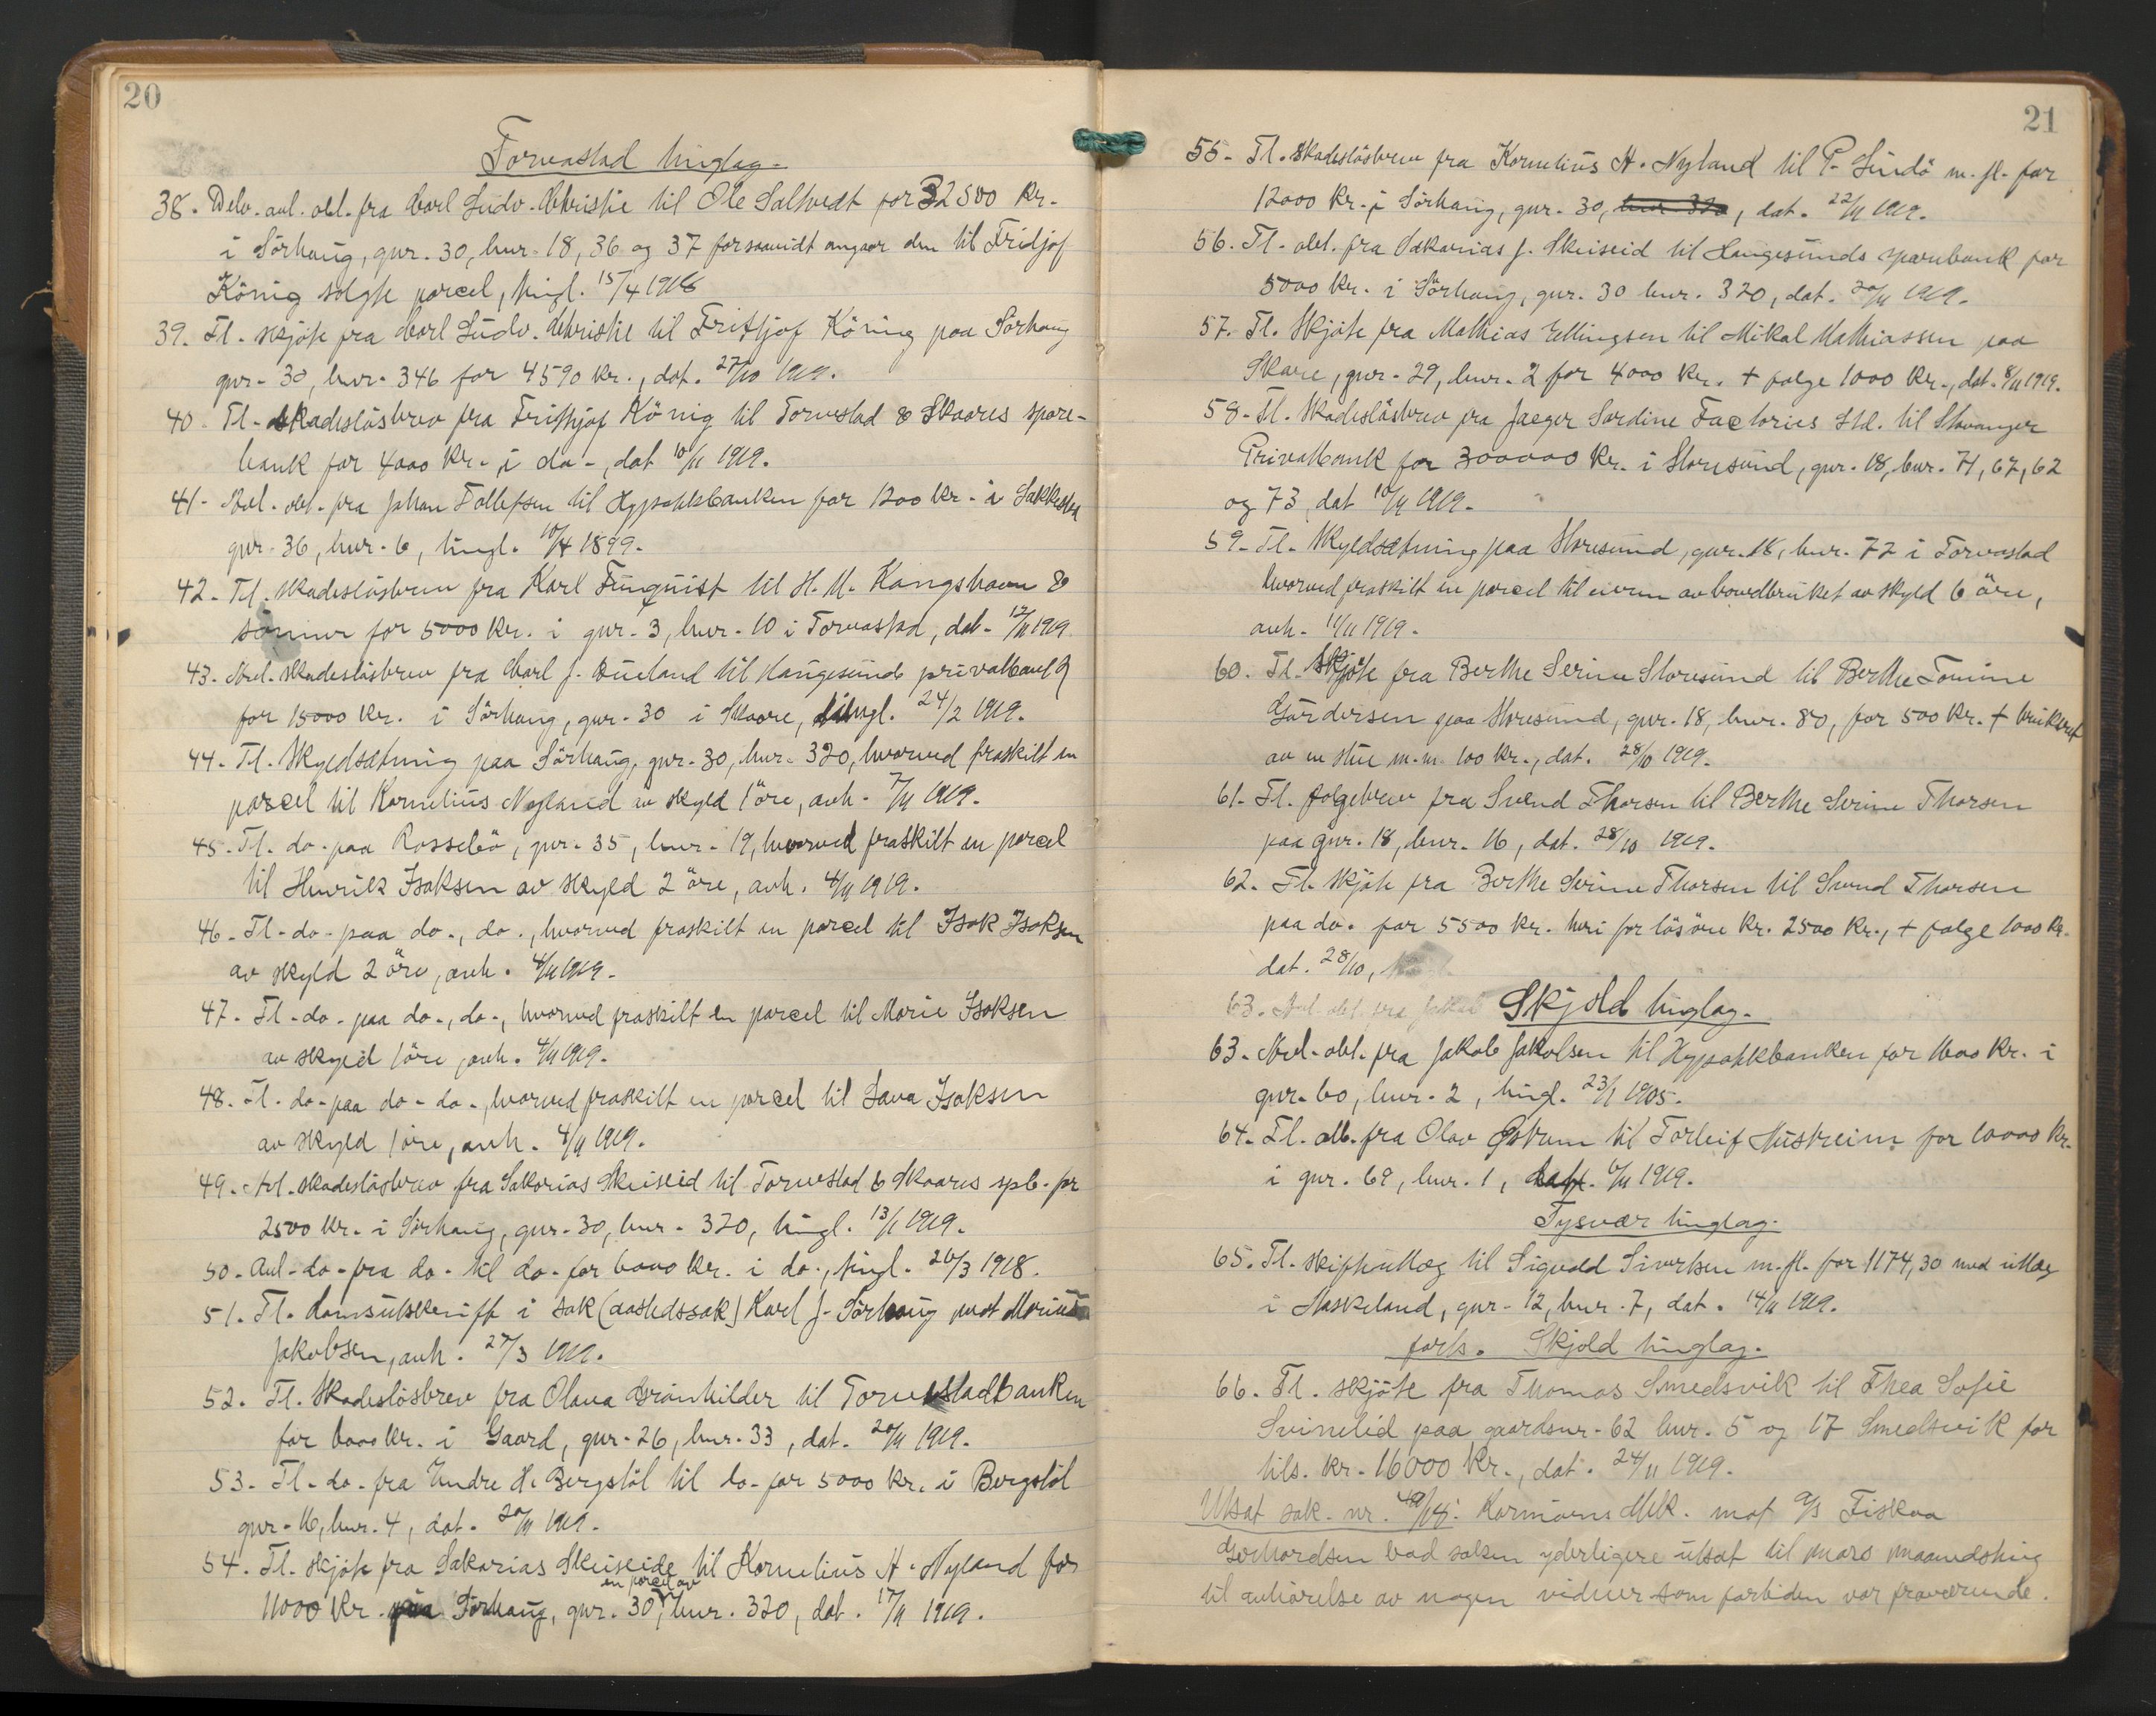 20
Torvastad tinglag.
38. Delv. avl. obl. fra Carl Ludv. Christie til Ole Saltvedt for 32500 kr.
i Sörhaug, gnr. 30, bnr. 18, 36 og 37 forsaavidt angaar den til Fridjof
König solgte parcel, tingl. 15/4 1918
39. Tl. skjöte fra Carl Ludv. Christie til Fritjof Köning paa Sörhaug
gnr. 30, bnr. 346 for 4590 kr., dat. 27/10 1919.
40. Tl. skadeslösbrev fra Fritjof König til Torvestad & Skaares spare-
bank for 4000 kr. i do., dat 10/11 1919.
41. Avl. obl. fra Johan Tollefsen til Hypothekbanken for 1200 kr. i Sakkestad
gnr. 36, bnr. 6, tingl. 10/4 1899.
42. Tl. skadeslösbrev fra Karl Finquist til H. M. Kongshavn &
sönner for 5000 kr. i gnr. 3, bnr. 10 i Torvastad, dat. 12/11 1919.
43. Avl. skadeslösbrev fra Carl J. Dueland til Haugesunds privatbank
for 15000 kr. i Sörhaug, gnr. 30 i Skaare, tingl. 24/2 1919.
44. Tl. skyldsætning paa Sörhaug, gnr. 30, bnr. 320, hvorved fraskilt en
parcel til Kornelius Nyland av skyld 1 öre, avh. 7/11 1919.
45. Tl. do. paa Rossebö, gnr. 35, bnr. 19, hvorved fraskilt en parcel
til Henrik Isaksen av skyld 2 öre, avh. 4/11 1919.
46. Tl. do. paa do., do., hvorved fraskilt en parcel til Isak Isaksen
av skyld 2 öre, avh. 4/11 1919.
47. Tl. do. paa do., do., hvorved fraskilt en parcel til Marie Isaksen
av skyld 1 öre, avh. 4/11 1919.
48. Tl. do. paa do. do., hvorved fraskilt en parcel til Lava Isaksen
av skyld 1 öre, avh. 4/11 1919.
49. Avl. skadeslösbrev fra Sakarias Skeiseid til Torvestad & Skaares spb. for
2500 kr. i Sörhaug, gnr. 30, bnr. 320, tingl. 13/1 1919.
50. Avl. do. fra do. til do. for 6000 kr. i do., tingl. 26/3 1918.
51. Tl. domsutskrift i sak (aastedssak) Karl J. Sörhaug mot
Jakobsen, avh. 27/3 1919.
52. Tl. skadeslösbrev fra Olava Grönhilder til Torvestadbanken
for 6000 kr. i Gaard, gnr. 26, bnr. 33, dat. 20/11 1919.
53. Tl. do. fra Endre H. Bergstöl til do. for 5000 kr. i Bergstöl
gnr. 16, bnr. 4, dat. 20/11 1919.
54. Tl. skjöte fra Sakarias Skeiseide til Kornelius H. Nyland for
11000 kr. paa Sörhaug, gnr. 30, en parcel av bnr. 320, dat. 17/11 1919.
21
55. Tl. skadeslösbrev fra Kornelius H. Nyland til P. Lindö m. fl. for
12000 kr. i Sörhaug, gnr. 30, bnr. 320, dat. 22/11 1919.
56. Tl. obl. fra Sakarias J. Skeiseid til Haugesunds sparebank for
5000 kr. i Sörhaug, gnr. 30 bnr. 320, dat. 20/11 1919.
57. Tl. skjöte fra Mathias Ellingsen til Mikal Mathiassen paa
Skare, gnr. 29, bnr. 2 for 4000 kr. + folge 1000 kr., dat. 8/11 1919.
58. Tl. skadeslösbrev fra Jaeger Sardine Factories Ltd. til Stavanger
Privatbank for 300000 kr. i Storesund, gnr. 18, bnr. 71, 67, 62
og 73, dat 10/11 1919.
59. Tl. skyldsætning paa Storesund, gnr. 18, bnr. 72 i Torvastad
hvorved fraskilt en parcel til eieren av hovedbruket av skyld 6 öre,
avh. 11/11 1919.
60. Tl. skjöte fra Berthe Serine Storesund til Berthe Tomine
Gundersen paa Storesund, gnr. 18, bnr. 80, for 500 kr. + bruksret
av en stue m.m. 100 kr., dat. 28/10 1919.
61. Tl. folgebrev fra Svend Thorsen til Berthe Serine Thorsen
paa gnr. 18, bnr. 16, dat. 28/10 1919.
62. Tl. skjöte fra Berthe Serine Thorsen til Svend Thorsen
paa do. for 5500 kr. heri for lösöre kr. 2500 kr., + folge 1000 kr.
dat. 28/10,
63. Avl. obl. fra Jakob
Skjold tinglag.
63. Avl. obl. fra Jakob Jakobsen til Hypothekbanken for 1600 kr. i
gnr. 60, bnr. 2, tingl. 23/1 1905.
64. Tl. obl. fra Olav Östrem til Torleif Austreim for 10000 kr.
i gnr. 69, bnr. 1, dat. 6/11 1919.
Tysvær tinglag.
65. Tl. skifteutlæg til Sigvald Sivertsen m. fl. for 1174,30 med utlæg
i Aaskeland, gnr. 12, bnr. 7, dat. 14/11 1919.
forts. Skjold tinglag.
66. Tl. skjöte fra Thomas Smedsvik til Thea Sofie
Svinelid paa gaardsnr. 62 bnr. 5 og 17 Smedsvik for
tils. kr. 16000 kr., dat. 24/11 1919.
Utsat sak. nr. Karmöens Mek. mot a/s Fiskaa
Gerhardsen bad saken yderligere utsat til mars maanedsting
til avhörelse av nogen vidner som fortiden var fraværende.